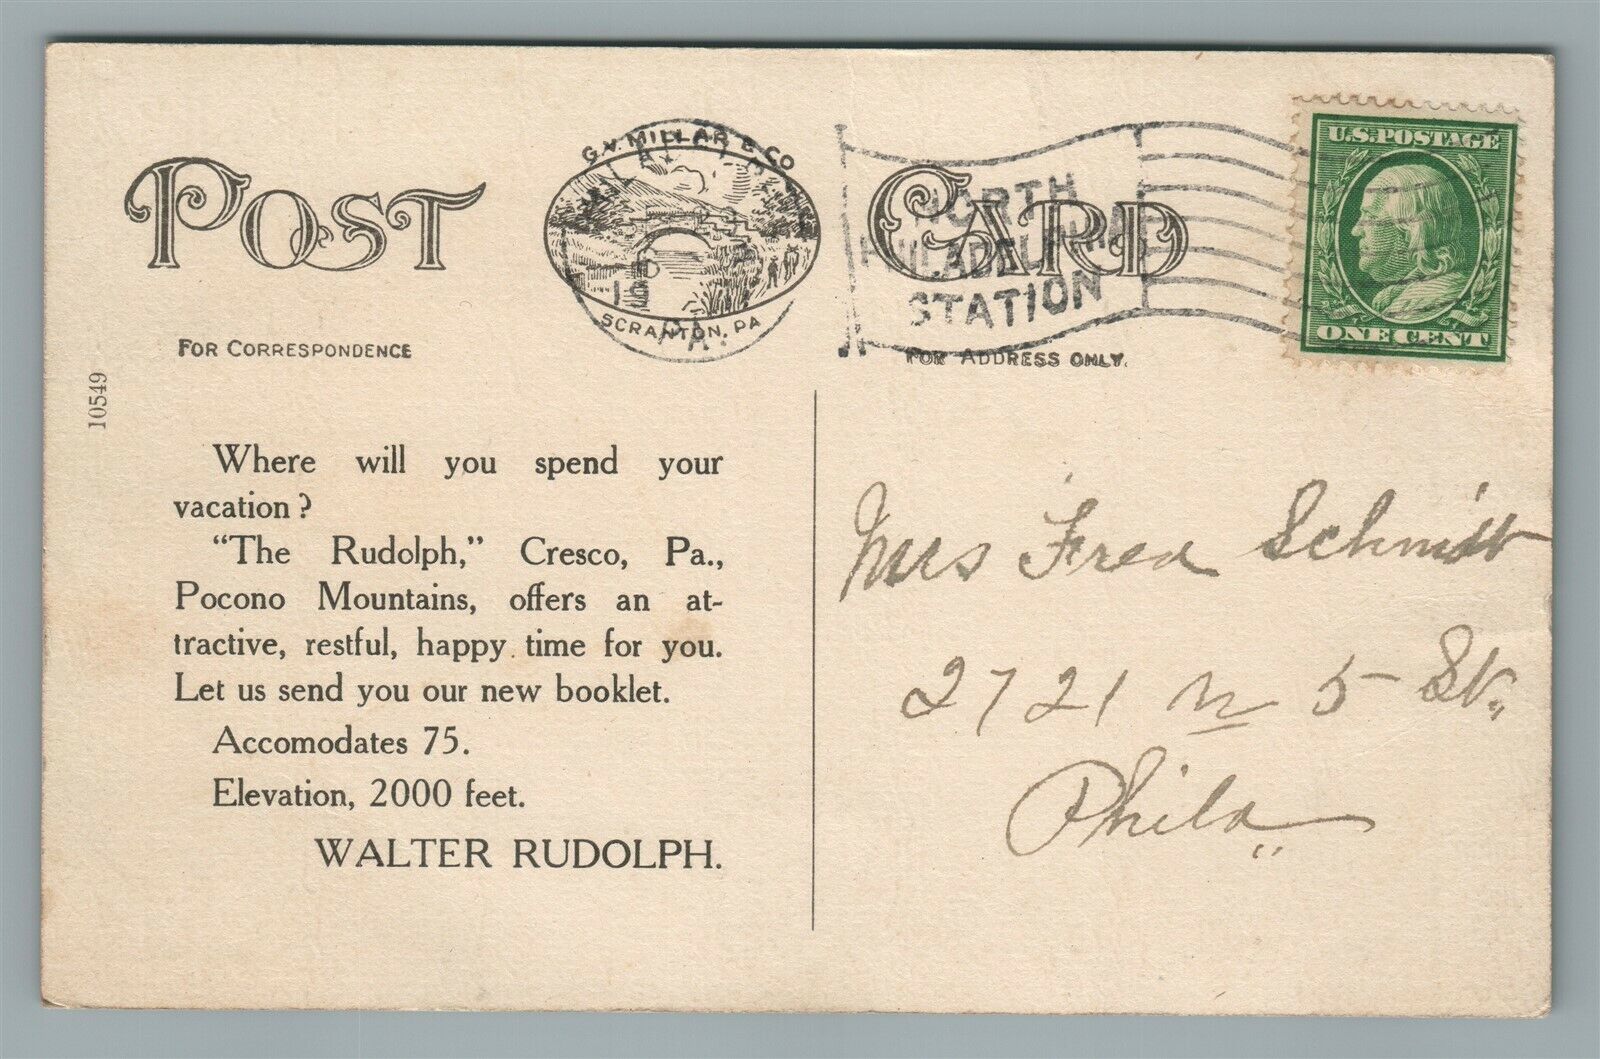 POST CARD
G.V. MILLAR & CO
SCRANTON, PA
NORTH
PHILADELPHIA
STATION
U.S. POSTAGE
ONE CENT
FOR CORRESPONDENCE
FOR ADDRESS ONLY.
10549
Where will you spend your
vacation?
"The Rudolph," Cresco, Pa.,
Pocono Mountains, offers an at-
tractive, restful, happy time for you.
Let us send you our new booklet.
Accomodates 75.
Elevation, 2000 feet.
WALTER RUDOLPH.
Mrs Fred Schmidt
2721 N 5 St.
Phila